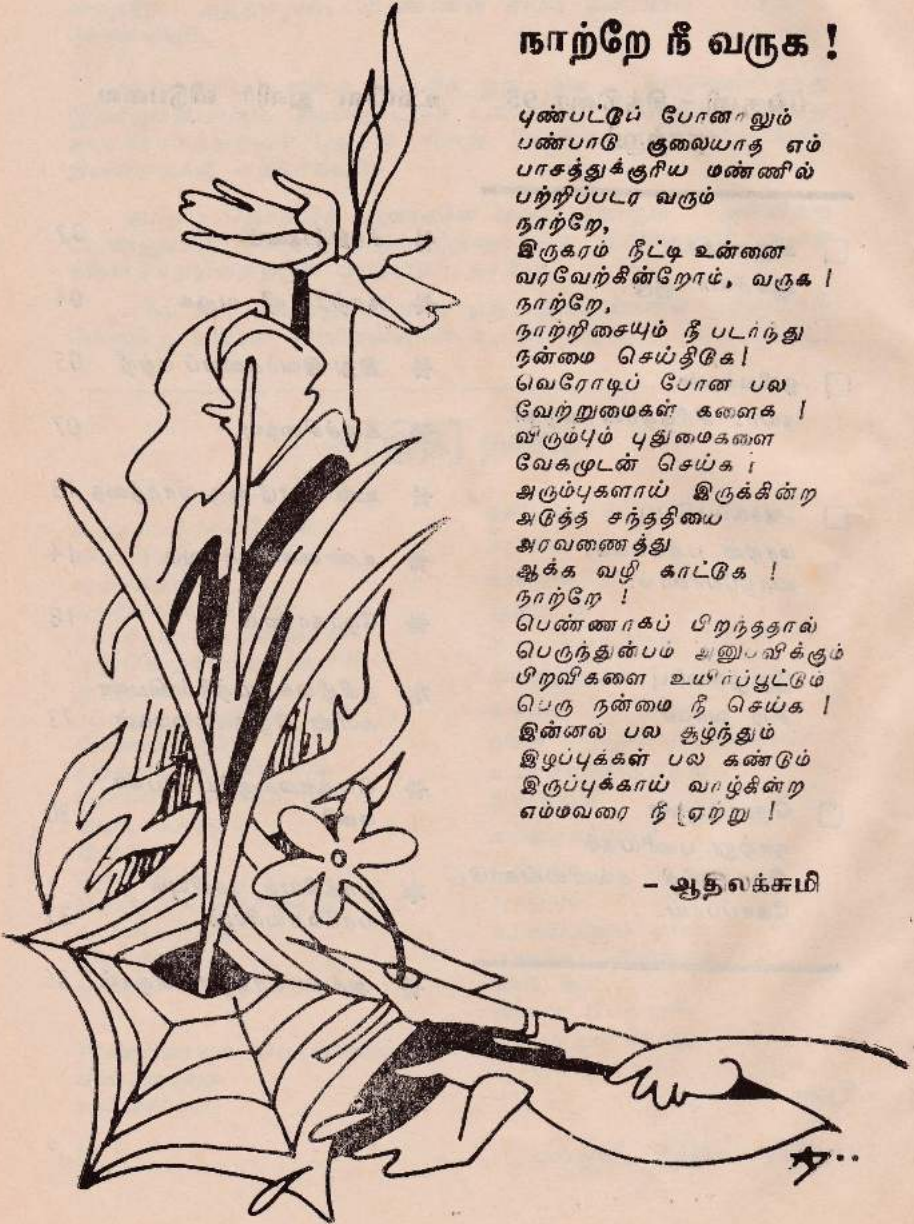 நாற்றே நீ வருக !
புண்பட்டுப் போனாலும்
பண்பாடு குலையாத எம்
பாசத்துக்குரிய மண்ணில்
பற்றிப்படர வரும்
நாற்றே,
இருகரம் நீட்டி உன்னை
வரவேற்கின்றோம், வருக !
நாற்றே,
நாற்றிசையும் நீ படர்ந்து
நன்மை செய்திடுக!
வெரோடிப் போன பல
வேற்றுமைகள் களைக !
விரும்பும் புதுமைகளை
வேகமுடன் செய்க !
அரும்புகளாய் இருக்கின்ற
அடுத்த சந்ததியை
அரவணைத்து
ஆக்க வழி காட்டுக !
நாற்றே !
பெண்ணாகப் பிறந்ததால்
பெருந்துன்பம் அனுபவிக்கும்
பிறவிகளை உயிர்ப்பூட்டும்
பெரு நன்மை நீ செய்க !
இன்னல் பல சூழ்ந்தும்
இழப்புக்கள் பல கண்டும்
இருப்புக்காய் வாழ்கின்ற
எம்மவரை நீ ஏற்று !
– ஆதிலக்சுமி